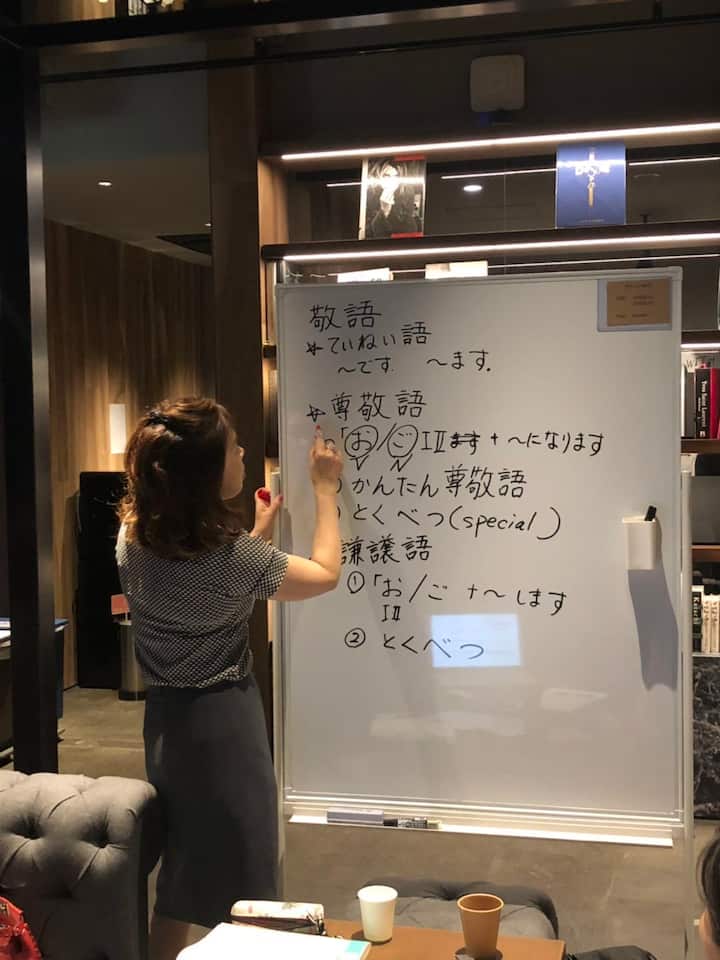 敬語
☆ていねい語
~です. ~ます.
☆尊敬語
「お/ご IⅡます + ~になります
かんたん尊敬語
とくべつ(special)
謙譲語
①「お/ご + ~します
IⅡ
② とくべつ